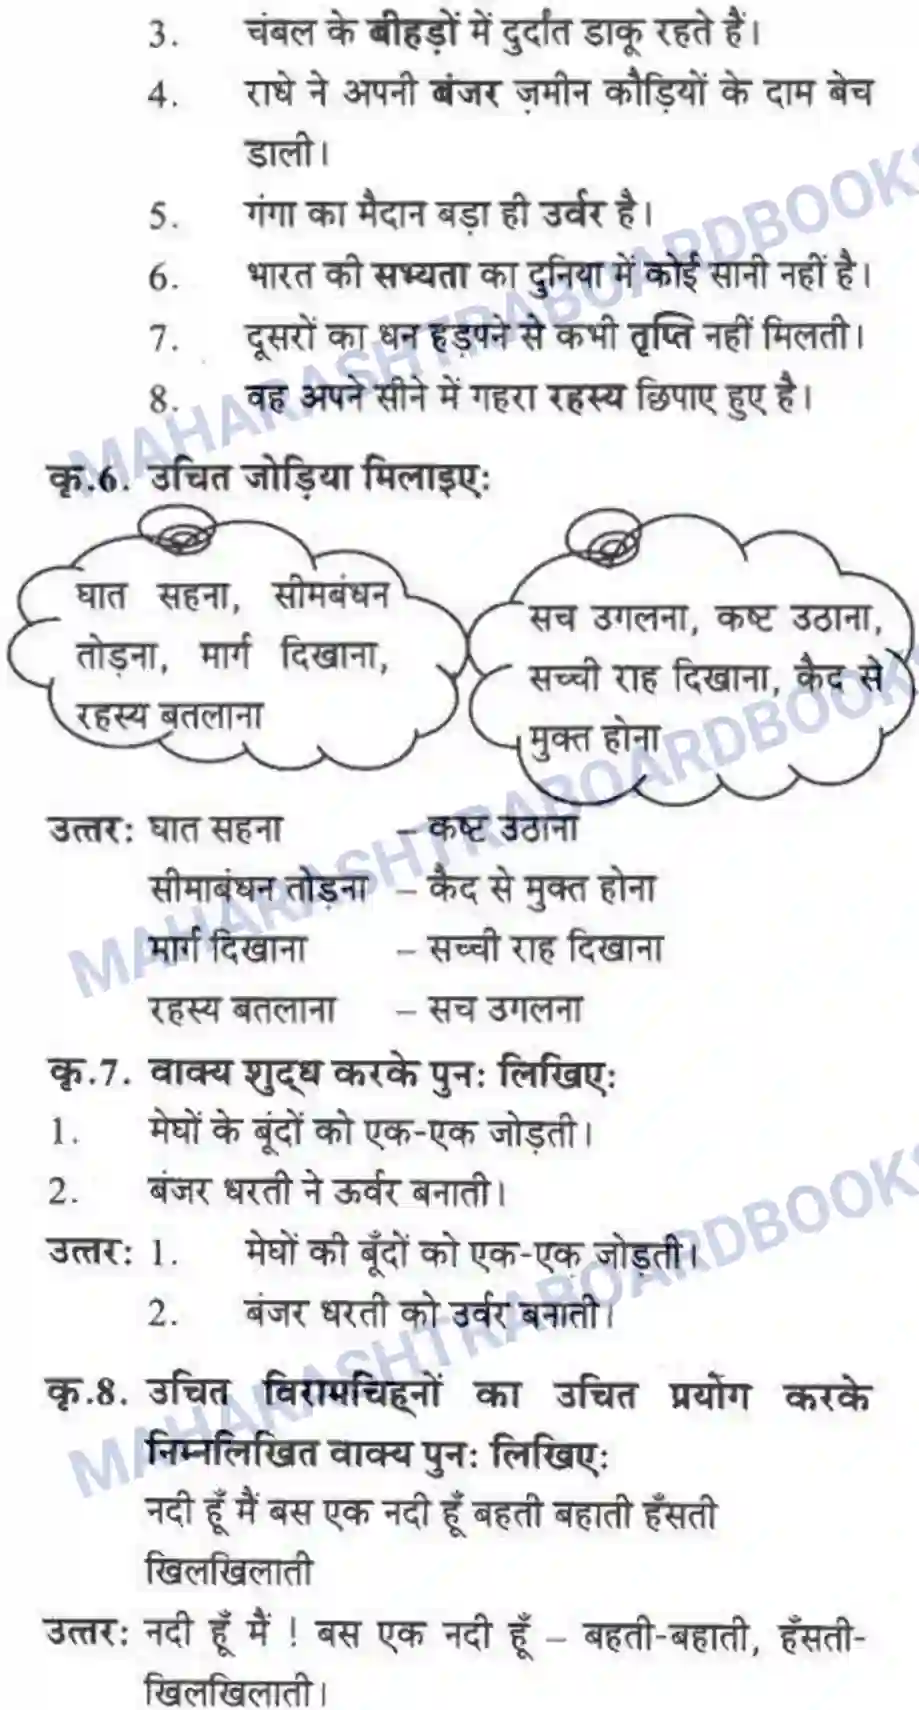 3. चंबल के बीहड़ों में दुर्दांत डाकू रहते हैं।
4. राधे ने अपनी बंजर ज़मीन कौड़ियों के दाम बेच
डाली।
5. गंगा का मैदान बड़ा ही उर्वर है।
6. भारत की सभ्यता का दुनिया में कोई सानी नहीं है।
7. दूसरों का धन हड़पने से कभी तृप्ति नहीं मिलती।
8. वह अपने सीने में गहरा रहस्य छिपाए हुए है।
कृ.6. उचित जोड़िया मिलाइए:
घात सहना, सीमबंधन
तोड़ना, मार्ग दिखाना,
रहस्य बतलाना
सच उगलना, कष्ट उठाना,
सच्ची राह दिखाना, कैद से
मुक्त होना
उत्तर: घात सहना – कष्ट उठाना
सीमाबंधन तोड़ना – कैद से मुक्त होना
मार्ग दिखाना – सच्ची राह दिखाना
रहस्य बतलाना – सच उगलना
कृ.7. वाक्य शुद्ध करके पुन: लिखिए:
1. मेघों के बूंदों को एक-एक जोड़ती।
2. बंजर धरती ने ऊर्वर बनाती।
उत्तर: 1. मेघों की बूँदों को एक-एक जोड़ती।
2. बंजर धरती को उर्वर बनाती।
कृ.8. उचित विरामचिह्नों का उचित प्रयोग करके
निम्नलिखित वाक्य पुन: लिखिए:
नदी हूँ मैं बस एक नदी हूँ बहती बहाती हँसती
खिलखिलाती
उत्तर: नदी हूँ मैं ! बस एक नदी हूँ – बहती-बहाती, हँसती-
खिलखिलाती।
MAHARASHTRABOARDBOOKS
MAHARASHTRABOARDBOOKS
MAHARASHTRABOARDBOOKS